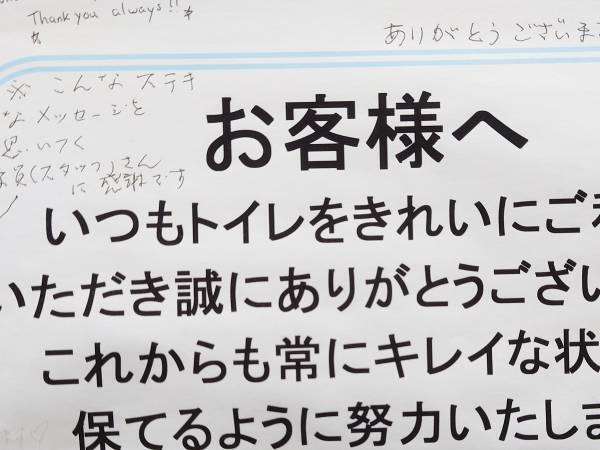 Thank you always!!
ありがとうございま
※こんなステキ
なメッセージを
思いつく
員(スタッフ)さん
に感謝です
お客様へ
いつもトイレをきれいにご
いただき誠にありがとうござい
これからも常にキレイな状
保てるように努力いたしま